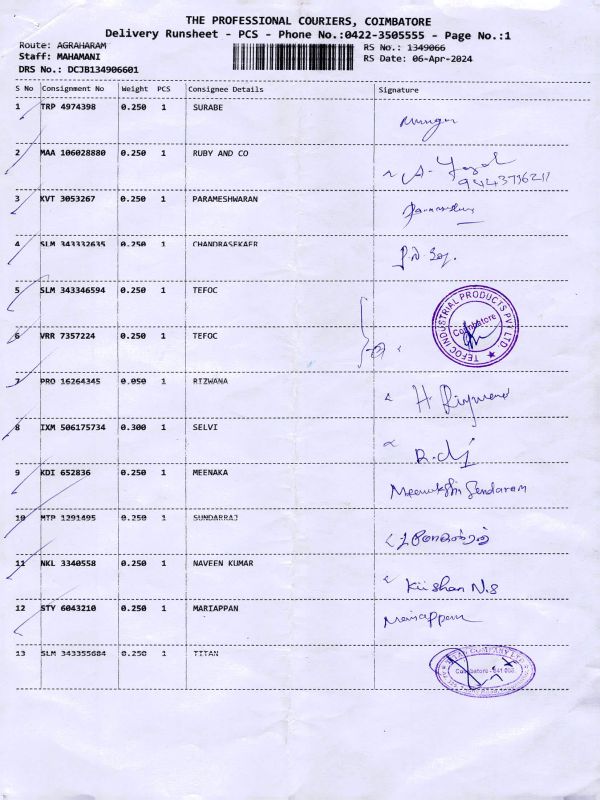 THE PROFESSIONAL COURIERS, COIMBATORE
Delivery Runsheet - PCS - Phone No.:0422-3505555 - Page No.:1
Route: AGRAHARAM RS No.: 1349066
Staff: MAHAMANI RS Date: 06-Apr-2024
DRS No.: DCJB134906601
S No Consignment No Weight PCS Consignee Details Signature
1 TRP 4974398 0.250 1 SURABE
2 MAA 106028880 0.250 1 RUBY AND CO
3 KVT 3053267 0.250 1 PARAMESHWARAN
4 SLM 343332635 0.250 1 CHANDRASEKAER
5 SLM 343346594 0.250 1 TEFOC
TEFOC INDUSTRIAL PRODUCTS PVT LTD.
Coimbatore
6 VRR 7357224 0.250 1 TEFOC
7 PRO 16264345 0.050 1 RIZWANA
8 IXM 506175734 0.300 1 SELVI
9 KDI 652836 0.250 1 MEENAKA
Meenakshi Sendaram
10 MTP 1291495 0.250 1 SUNDARRAJ
11 NKL 3340558 0.250 1 NAVEEN KUMAR
Kishan N.S
12 STY 6043210 0.250 1 MARIAPPAN
Mariappan
13 SLM 343355684 0.250 1 TITAN
TITAN COMPANY LTD
Coimbatore